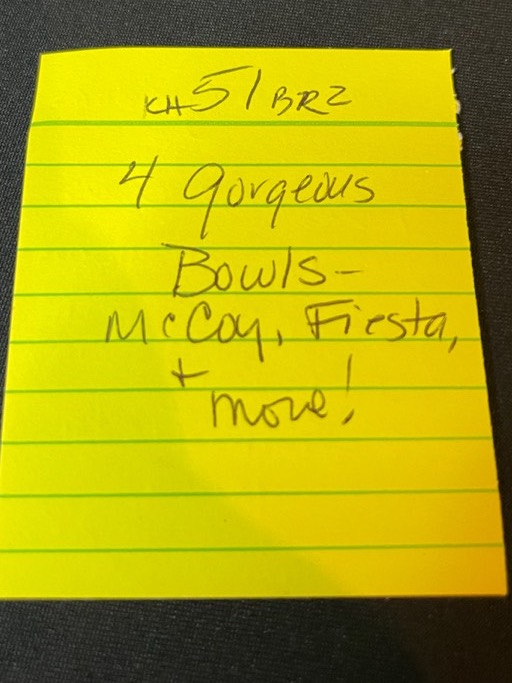 KH51BR2
4 Gorgeous
Bowls-
McCoy, Fiesta,
+
more!